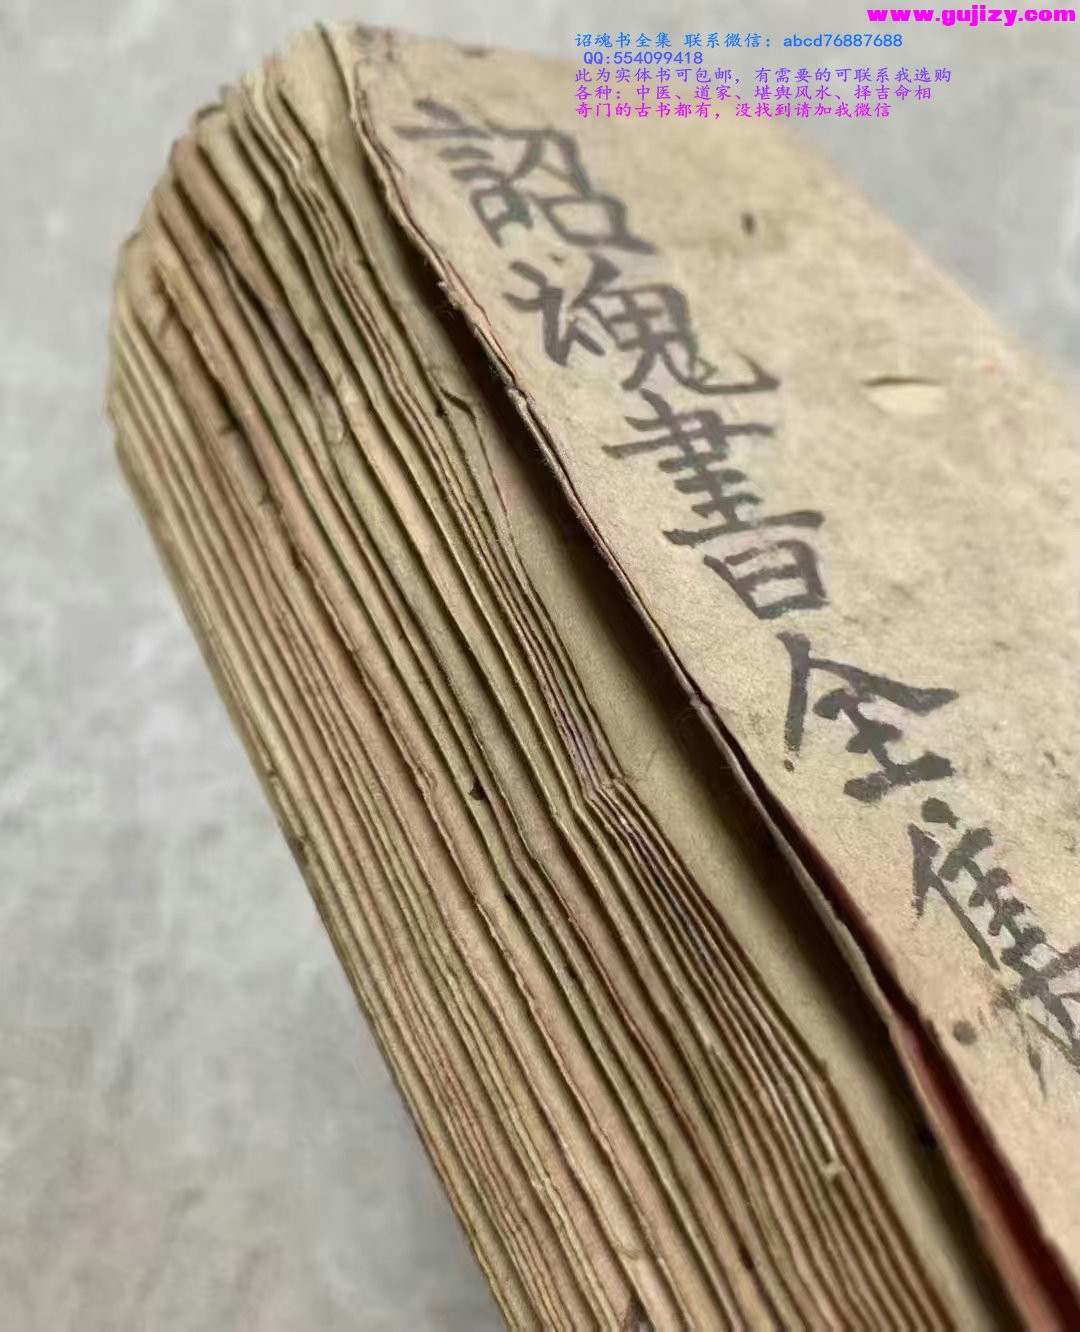 www.gujizy.com
诏魂书全集 联系微信：abcd76887688
QQ:554099418
此为实体书可包邮，有需要的可联系我选购
各种：中医、道家、堪舆风水、择吉命相
奇门的古书都有，没找到请加我微信
詔魂書全集